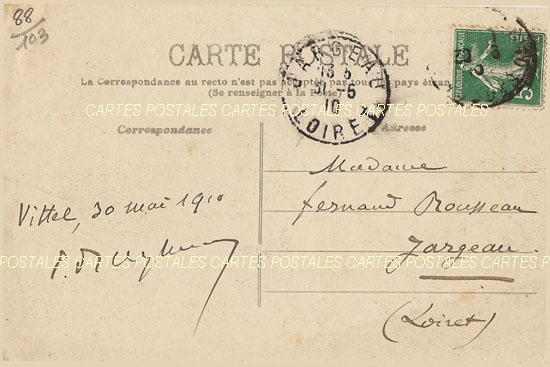 88
103
CARTE POSTALE
La Correspondance au recto n'est pas acceptée par tous les pays étran
(Se renseigner à la Poste)
CARTES POSTALES CARTES POSTALES CARTES POSTALES CARTES POSTALES
Correspondance
Adresse
JARGEAU
13 5
31-5
10
LOIRET
Madame
Fernand Rousseau
Jargeau
(Loiret)
Vittel, 30 mai 1910
POSTALES CARTES POSTALES CARTES POSTALES CARTES POSTALES CARTES